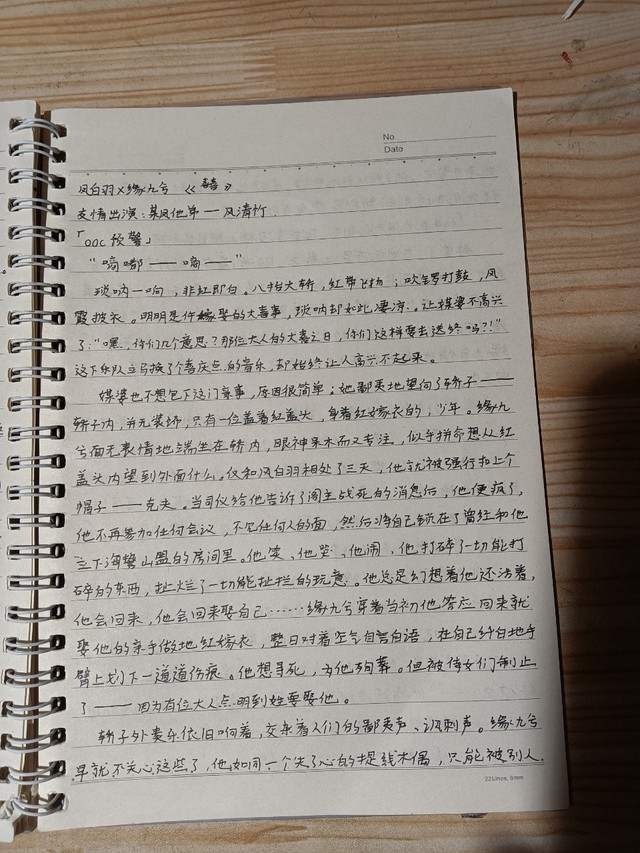 No
Date
风白羽×缘九兮 《囍》
友情出演:某风他弟一风清竹.
「OOC预警」
“嘀嘟——嘀——”
琐呐一响,非红即白。八抬大轿,红带飞扬;吹锣打鼓,凤
霞披衣。明明是件嫁娶的大喜事,琐呐却如此凄凉。让媒婆不高兴
了:“嘿,你们几个意思?那位大人的大喜之日,你们这样要去送终吗?!”
这下乐队立马换了个喜庆点的音乐,却始终让人高兴不起来。
媒婆也不想包下这门亲事,原因很简单:她鄙夷地望向了轿子——
轿子内,并无装饰,只有一位盖着红盖头,身着红嫁衣的少年。缘九
兮面无表情地端坐在轿内,眼神呆木而又专注,似乎拼命想从红
盖头内望到外面什么。仅和风白羽相处了三天,他就被强行扣上个
帽子——克夫。当司仪给他告诉了阁主战死的消息后,他便疯了,
他不再参加任何会议,不见任何人的面,然后将自己锁在了曾经和他
立下海誓山盟的房间里。他笑、他哭、他闹,他打碎了一切能打
碎的东西,扯烂了一切能扯拦的玩意。他总是幻想着他还活着,
他会回来,他会回来娶自己……缘九兮穿着当初他答应回来就
娶他的亲手做地红嫁衣,整日对着空气自言自语,在自己纤白地手
臂上划下一道道伤痕。他想寻死,为他殉葬。但被侍女们制止
了——因为有位大人点明到姓要娶他。
轿子外奏乐依旧响着,交杂着人们的鄙夷声、讽刺声。缘九兮
早就不关心这些了,他如同一个失了心的提线木偶,只能被别人
22Lines, 8mm